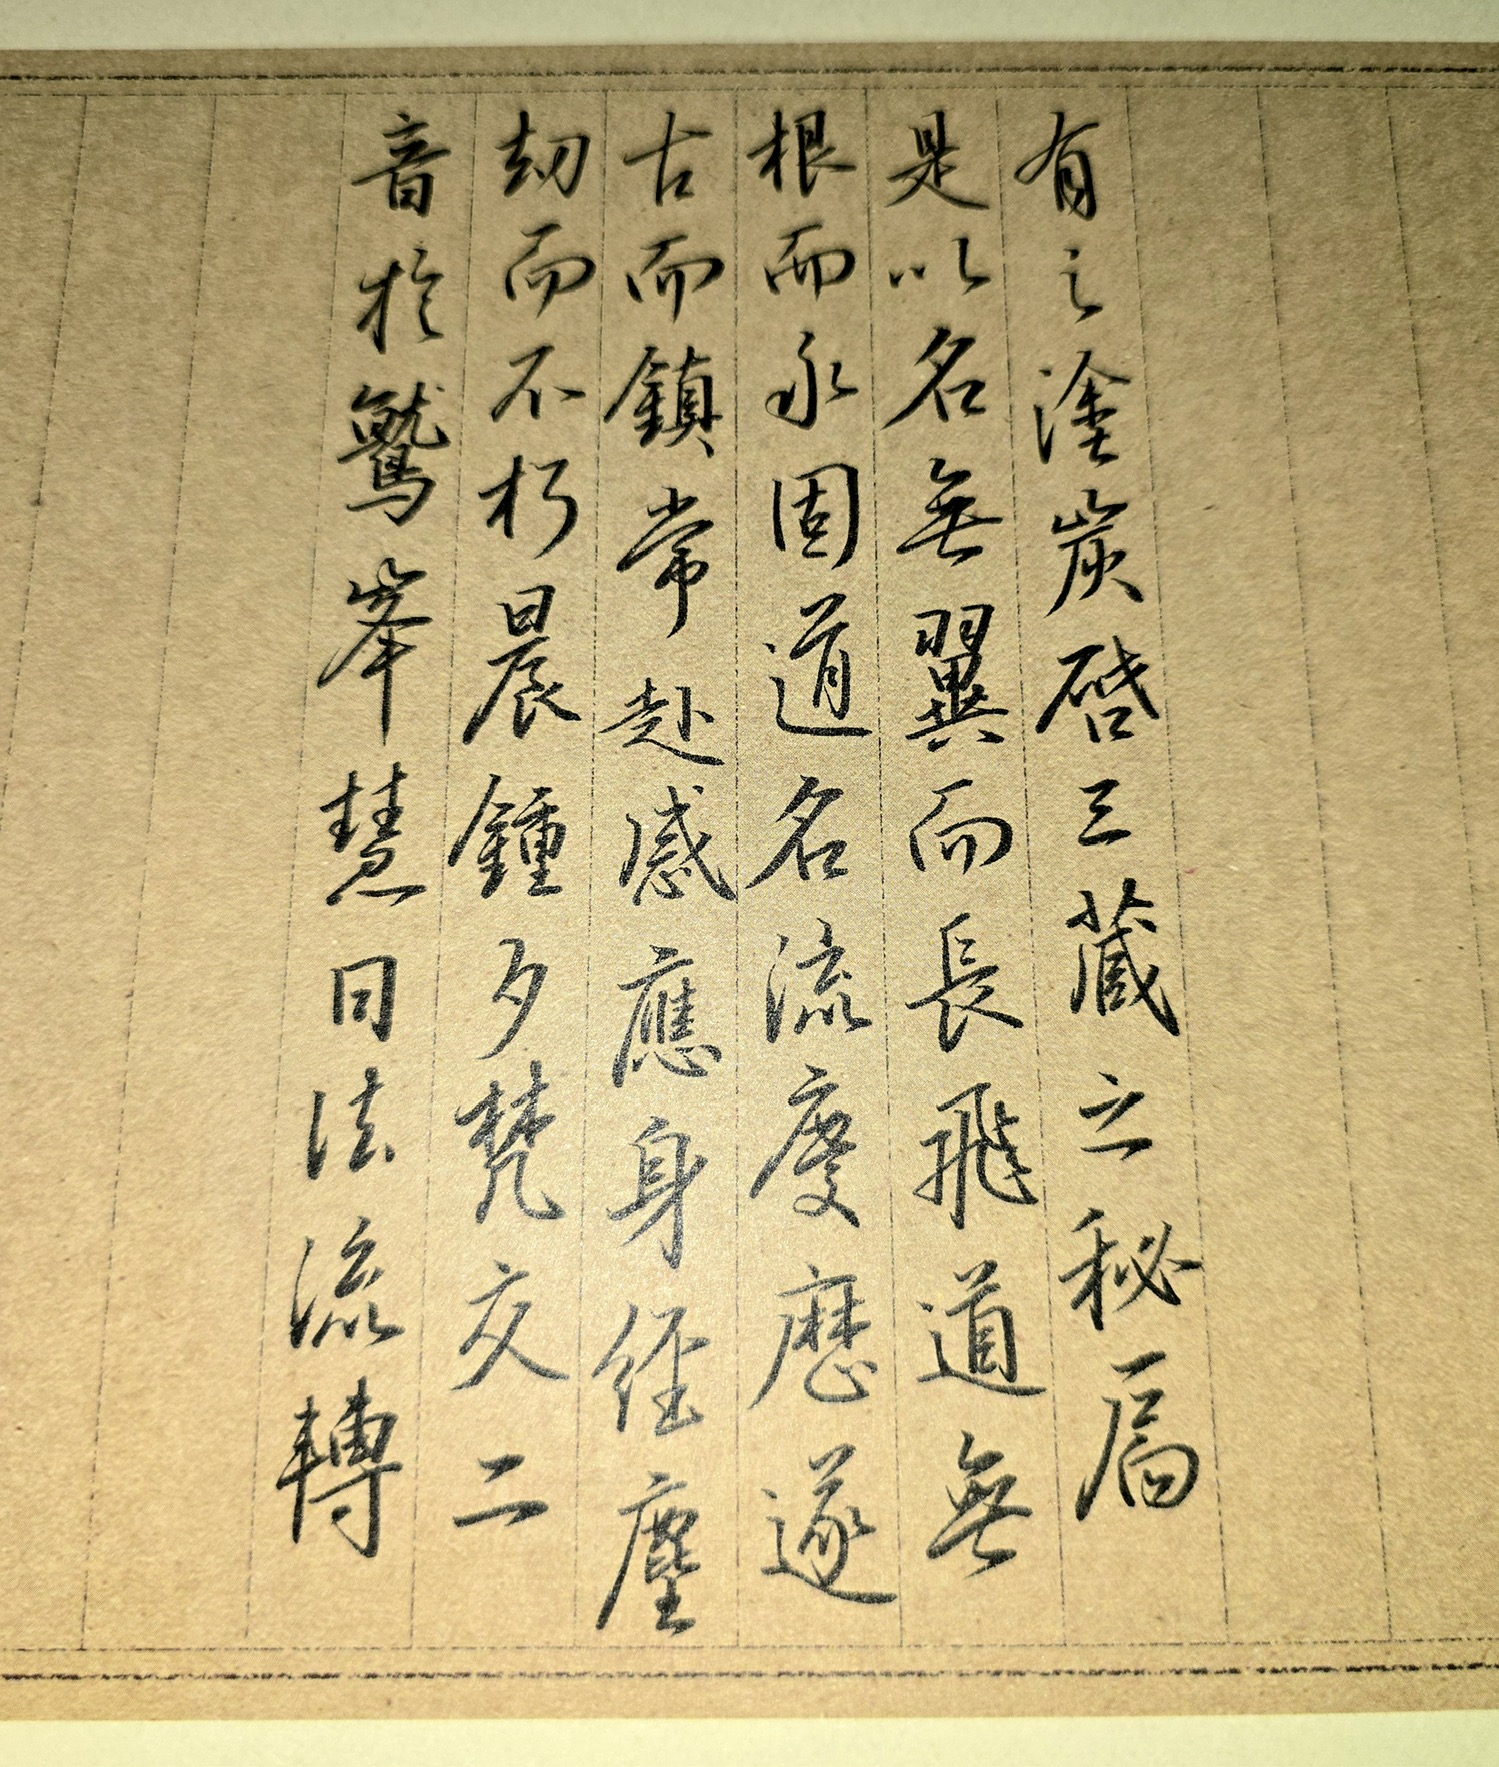 有之塗炭啓三藏之秘扃
是以名無翼而長飛道無
根而永固道名流慶歷遂
古而鎮常赴感應身經塵
劫而不朽晨鍾夕梵交二
音於鷲峯慧日法流轉